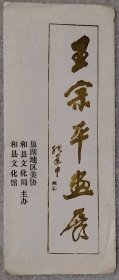 王宗平画展
巢湖地区美协
和县文化局 主办
和县文化馆